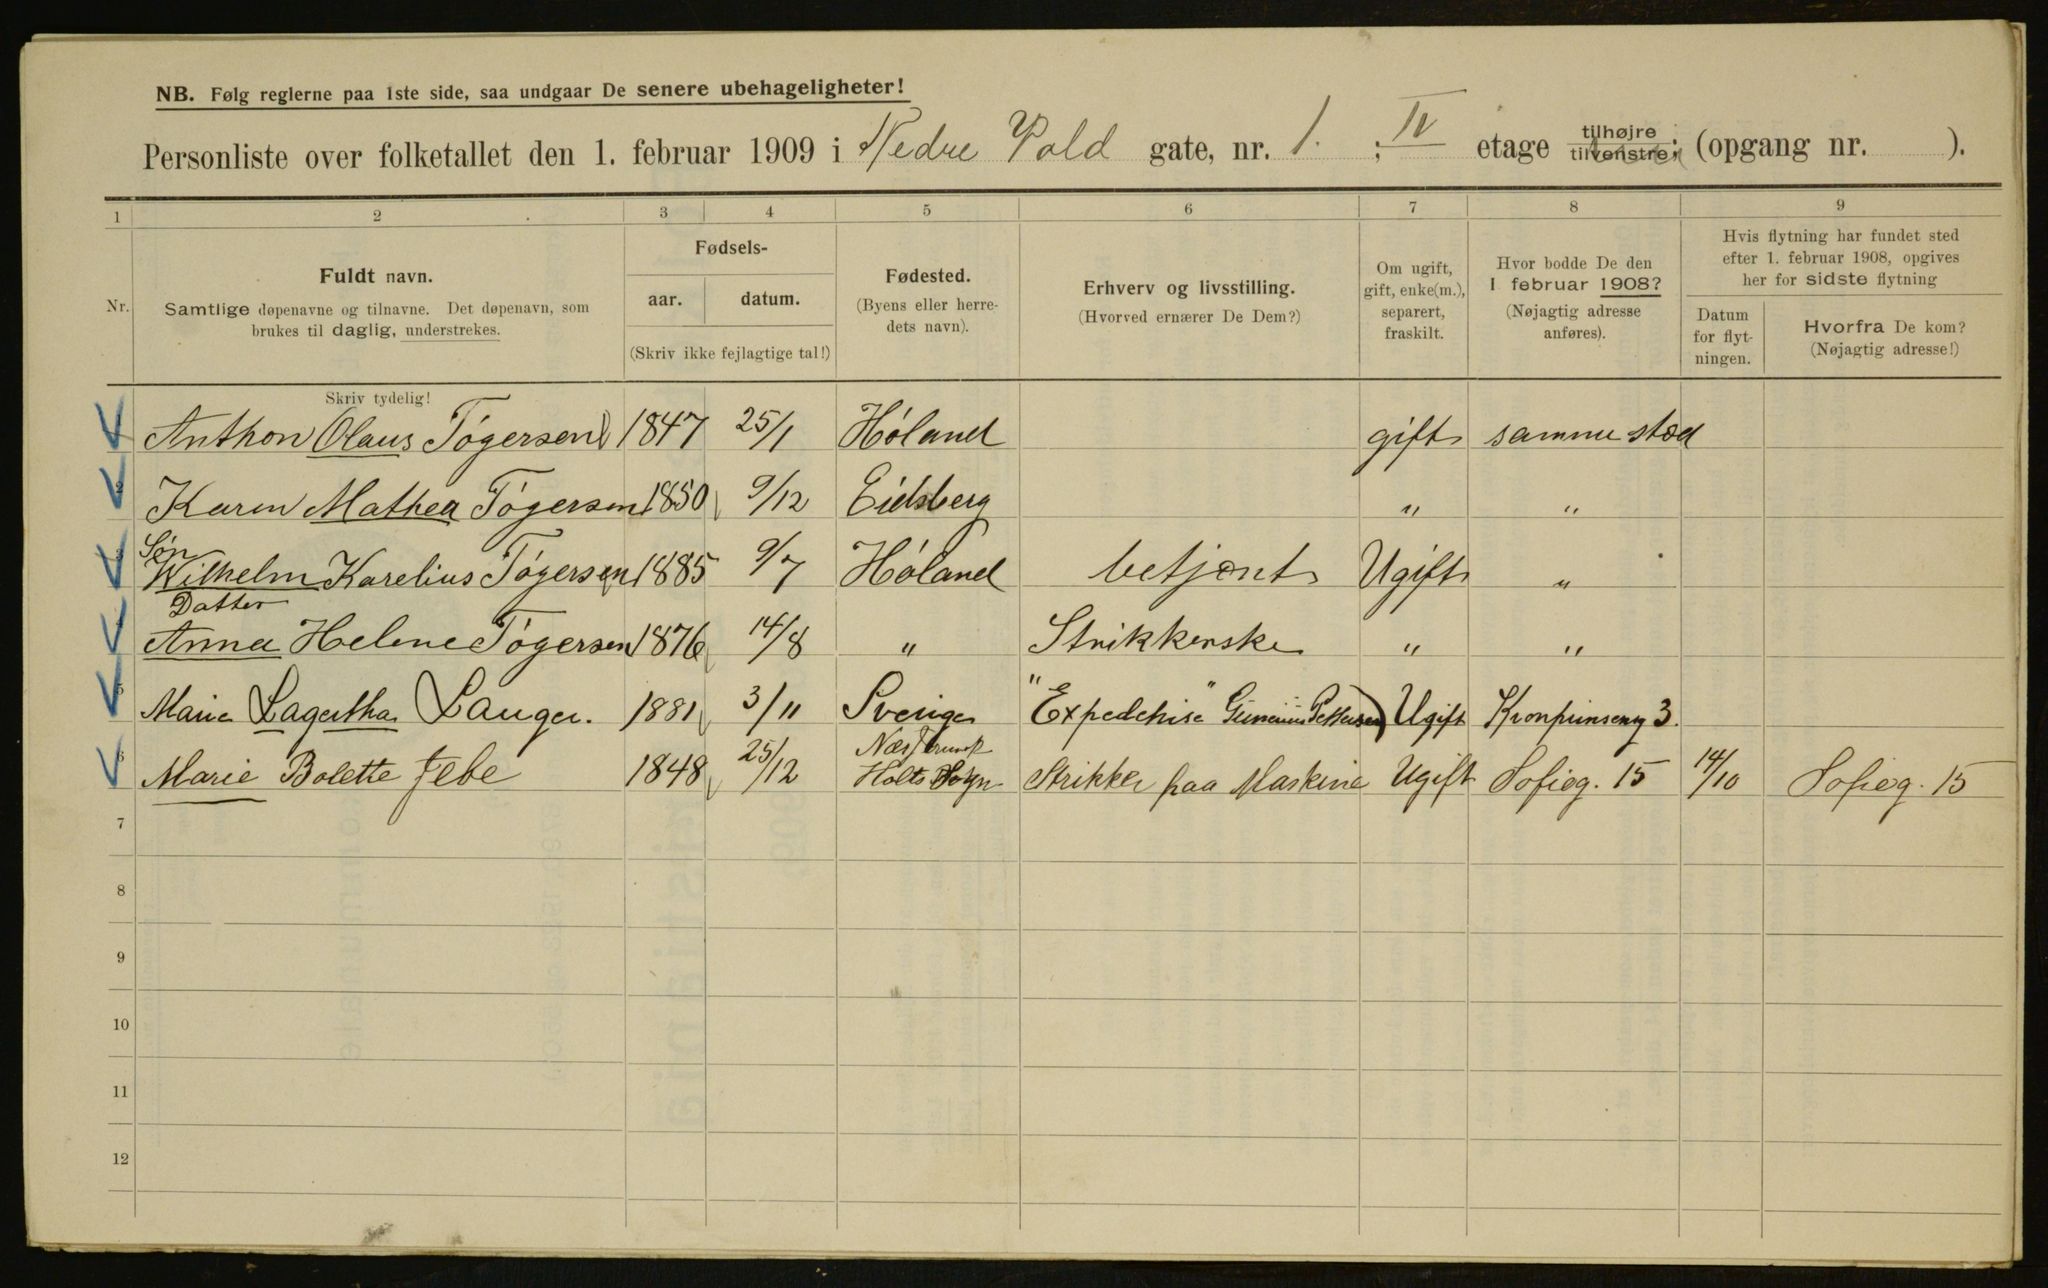 NB. Følg reglerne paa 1ste side, saa undgaar De senere ubehageligheter!
Personliste over folketallet den 1. februar 1909 i Nedre Vold gate, nr. 1. ; IV etage tilhøjre tilvenstre; (opgang nr. ).
1 2 3 4 5 6 7 8 9
Nr.
Fuldt navn.
Samtlige døpenavne og tilnavne. Det døpenavn, som
brukes til daglig, understrekes.
Fødsels-
aar. datum.
(Skriv ikke fejlagtige tal!)
Fødested.
(Byens eller herre-
dets navn).
Erhverv og livsstilling.
(Hvorved ernærer De Dem?)
Om ugift,
gift, enke(m.),
separert,
fraskilt.
Hvor bodde De den
1 februar 1908?
(Nøjagtig adresse
anføres).
Hvis flytning har fundet sted
efter 1. februar 1908, opgives
her for sidste flytning
Datum
for flyt-
ningen.
Hvorfra De kom?
(Nøjagtig adresse!)
Skriv tydelig!
Anthon Olaus Tøgersen 1847 25/1 Høland gift samme sted
2 Karen Mathea Tøgersen 1850 9/12 Eidsberg " "
Søn
Wilhelm Karelius Tøgersen 1885 9/7 Høland betjent Ugift "
Datter
Anna Helene Tøgersen 1876 14/8 " Strikkerske " "
5 Marie Lagertha Langer. 1881 3/11 Sverige "Expedetrise" Pettersen) Ugift Kronprinseng 3.
6 Marie Bolette Jebe 1848 25/12 Næs Holts Sogn Strikker paa Maskine Ugift Sofieg. 15 14/10 Sofieg. 15
7
8
9
10
11
12